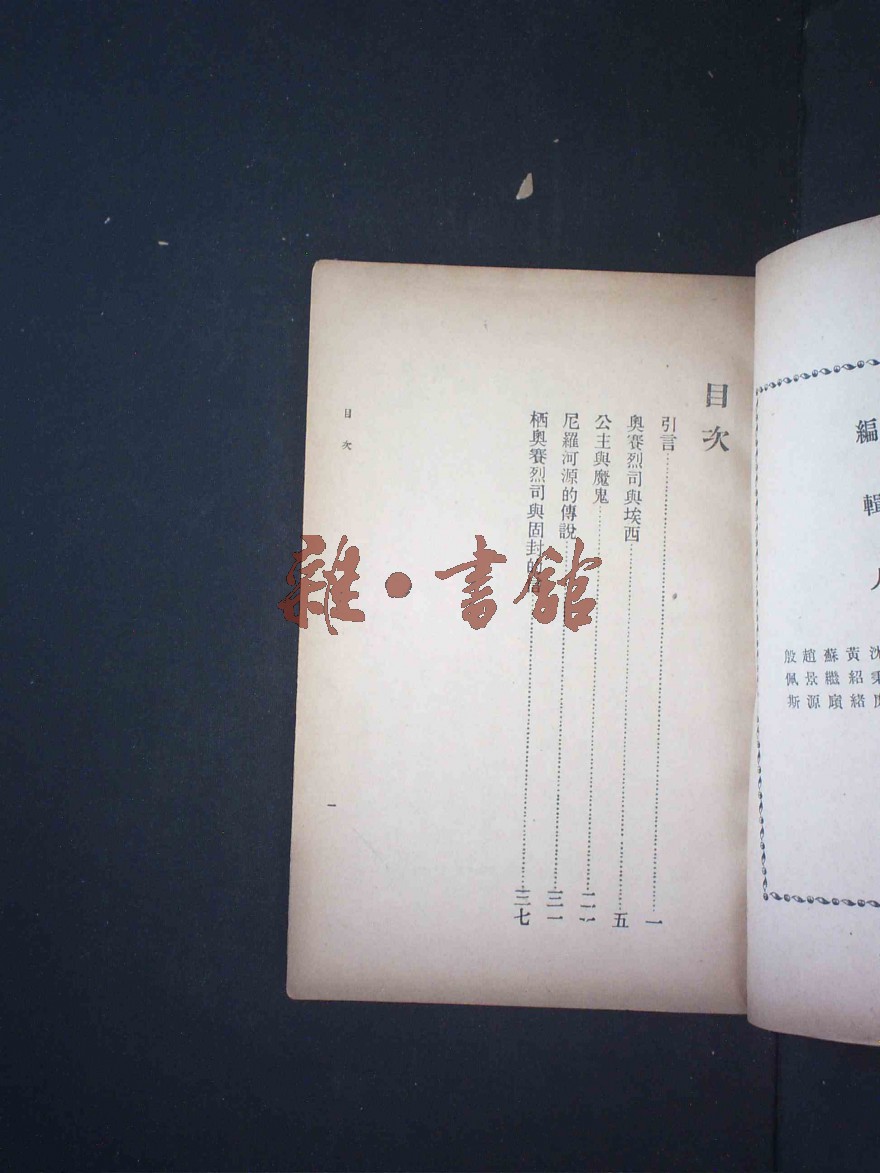 編輯
黃紹緒
蘇繼廎
趙景源
殷佩斯
目次
引言……一
奧賽烈司與埃西……五
公主與魔鬼……
尼羅河源的傳說……三一
栖奧賽烈司與固封……三七
目次
一
雜·書館